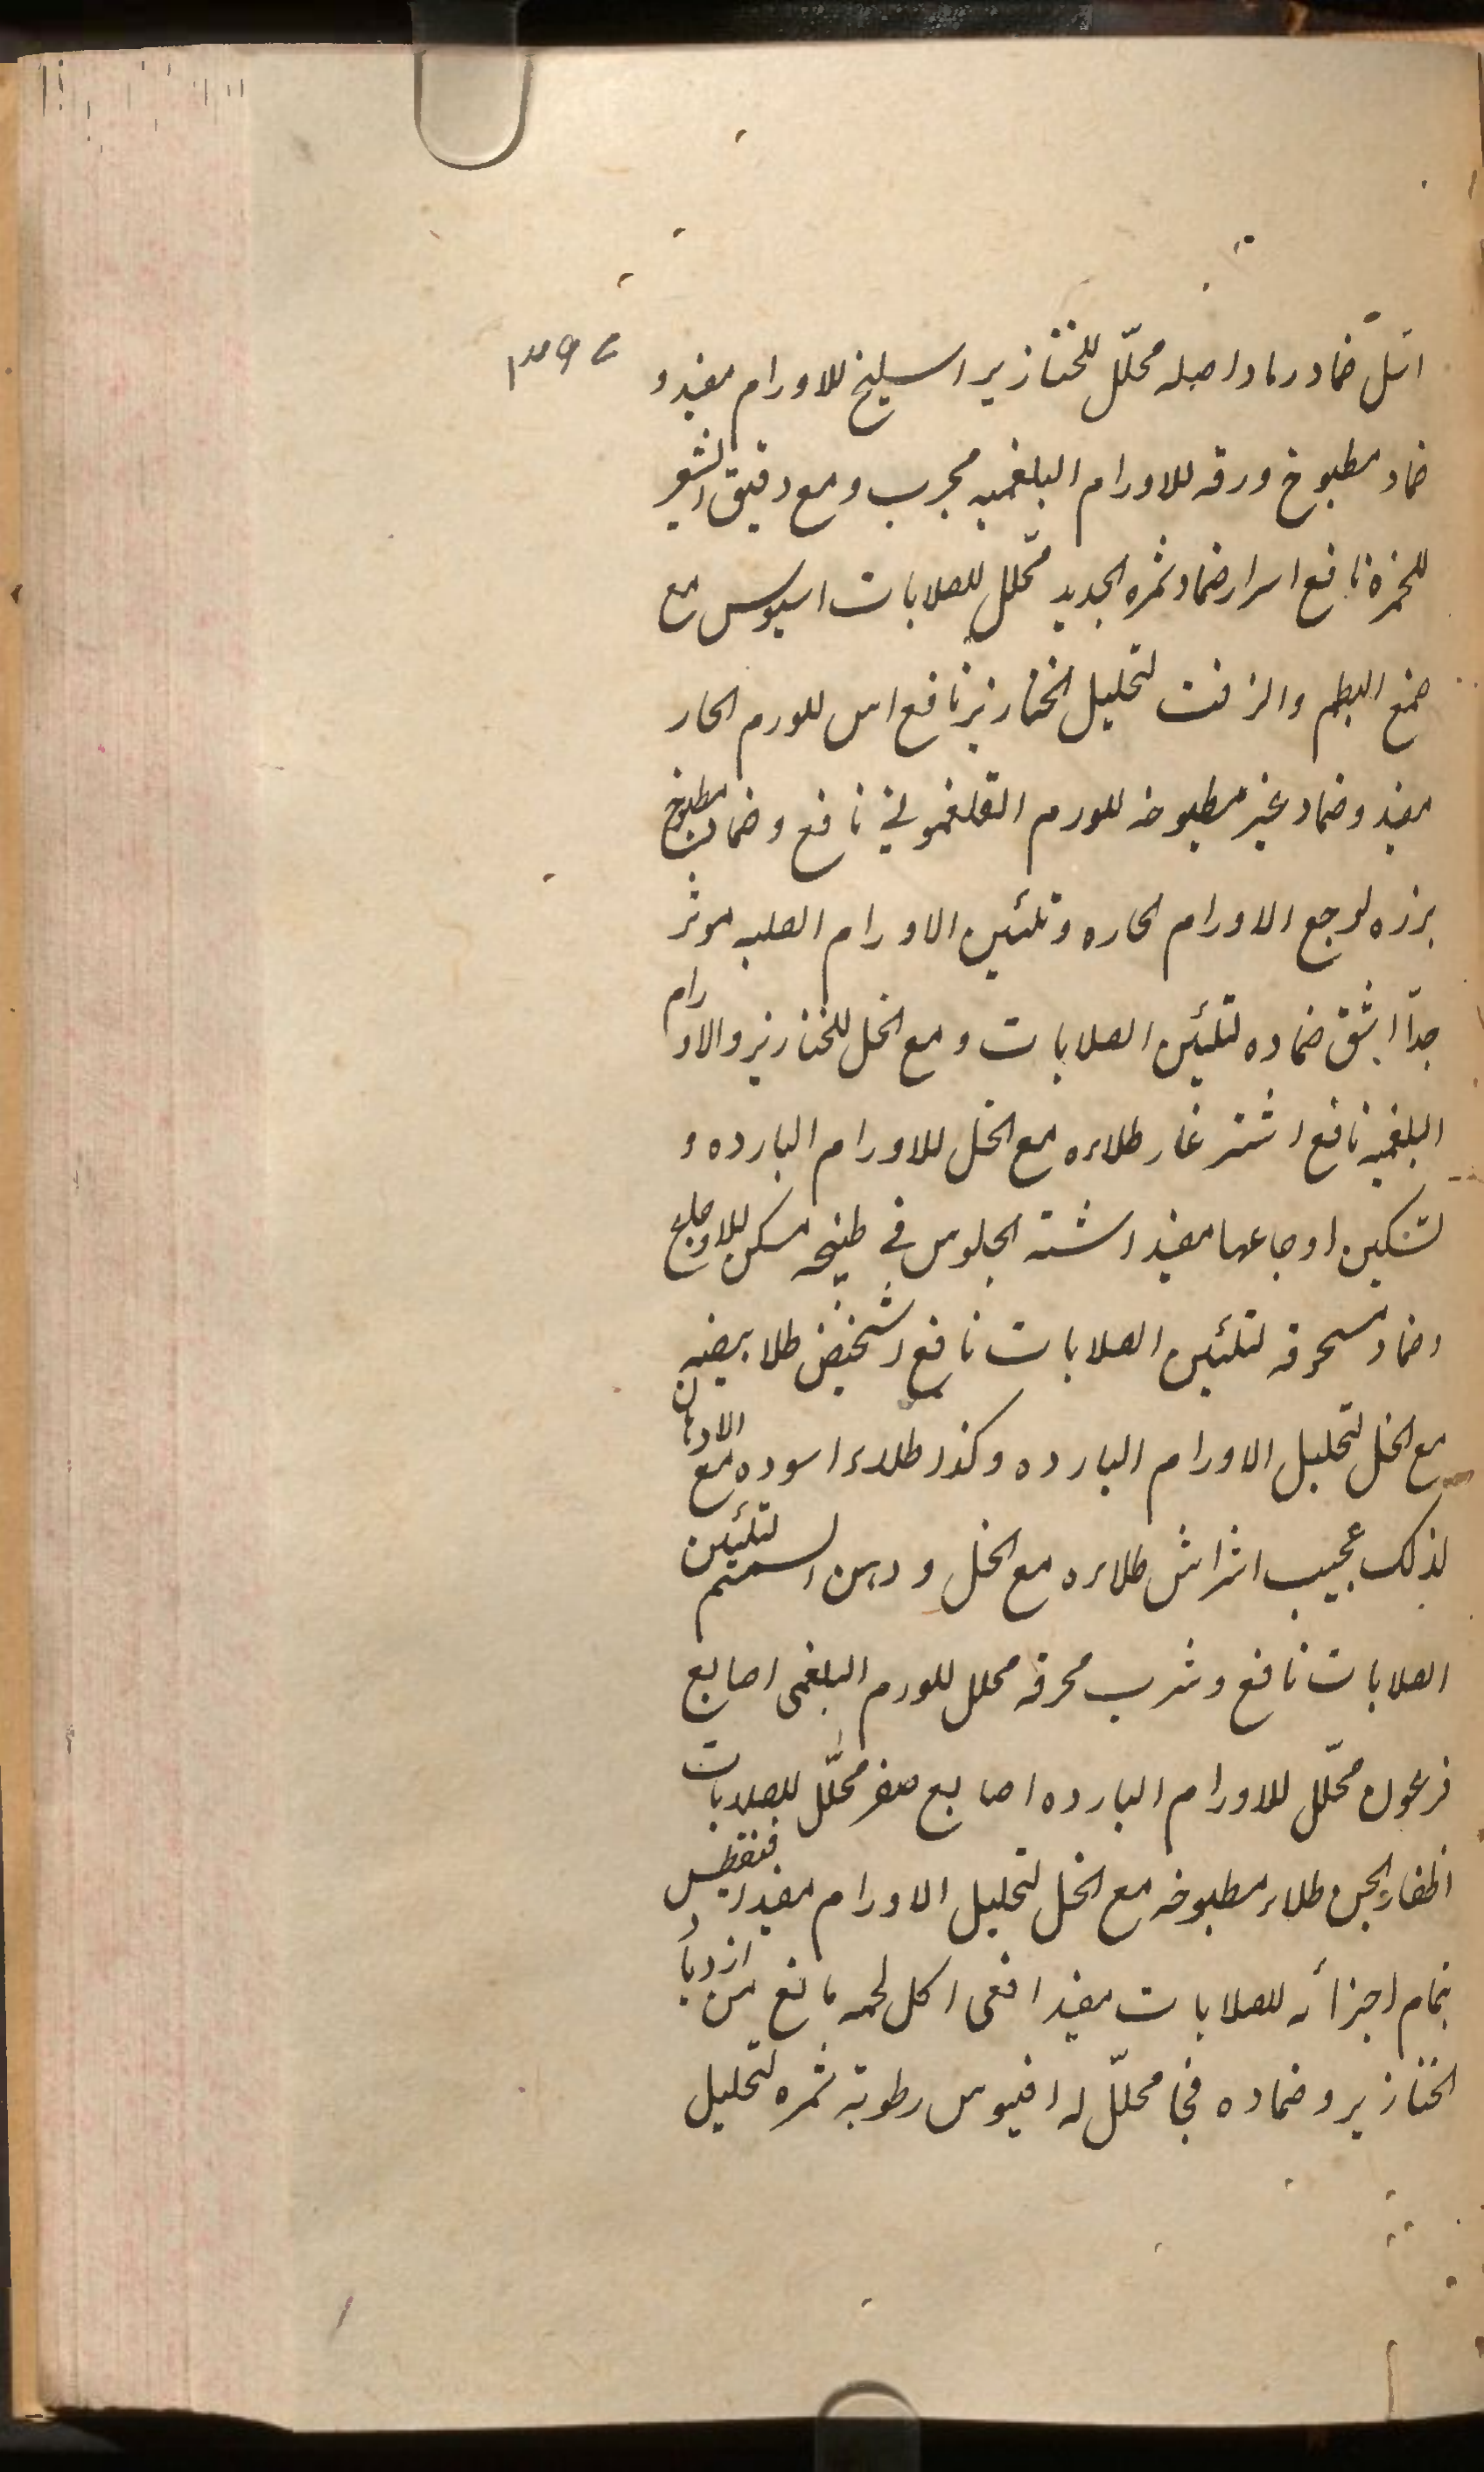 اثل ضماد رماد اصله محلّل للخنازير اسليخ للاورام مفيد و
ضماد مطبوخ ورقه للاورام البلغميه مجرب و مع دقيق الشعير
للحمزه نافع اسرار ضماد ثمره الجديد محلّل للصلابات اسيوس مع
صمغ البطم والزفت لتحليل الخنازير نافع اس للورم الحار
مفيد و ضماد غير مطبوخه للورم الفلغموني نافع و ضماد مطبوخ
بزره لوجع الاورام الحاره و تلئين الاورام الصلبه موثر
جدّا اشق ضماده لتلئين الصلابات و مع الخل للخنازير والاورام
البلغميه نافع اشترغار طلاءه مع الخل للاورام البارده و
لتسكين اوجاعها مفيد اشنه الجلوس في طبيخه مسكن للاوجاع
و ضماد مسحوقه لتلئين الصلابات نافع اشخيض طلا بيضه
مع الخل لتحليل الاورام البارده و كذا طلاء اسوده مع الادهان
لذلك عجيب اشراش طلاءه مع الخل و دهن السمسم لتلئين
الصلابات نافع و شرب محرقه محلل للورم البلغمى اصابع
فرعون محلّل للاورام البارده اصابع صفر محلّل للصلابات
اظفار الجن طلاء مطبوخه مع الخل لتحليل الاورام مفيد
بتمام اجزائه للصلابات مفيد افعى اكل لحمه مانع من ازدياد
الخنازير و ضماده فجا محلّل له افيوس رطوبة ثمره لتحليل